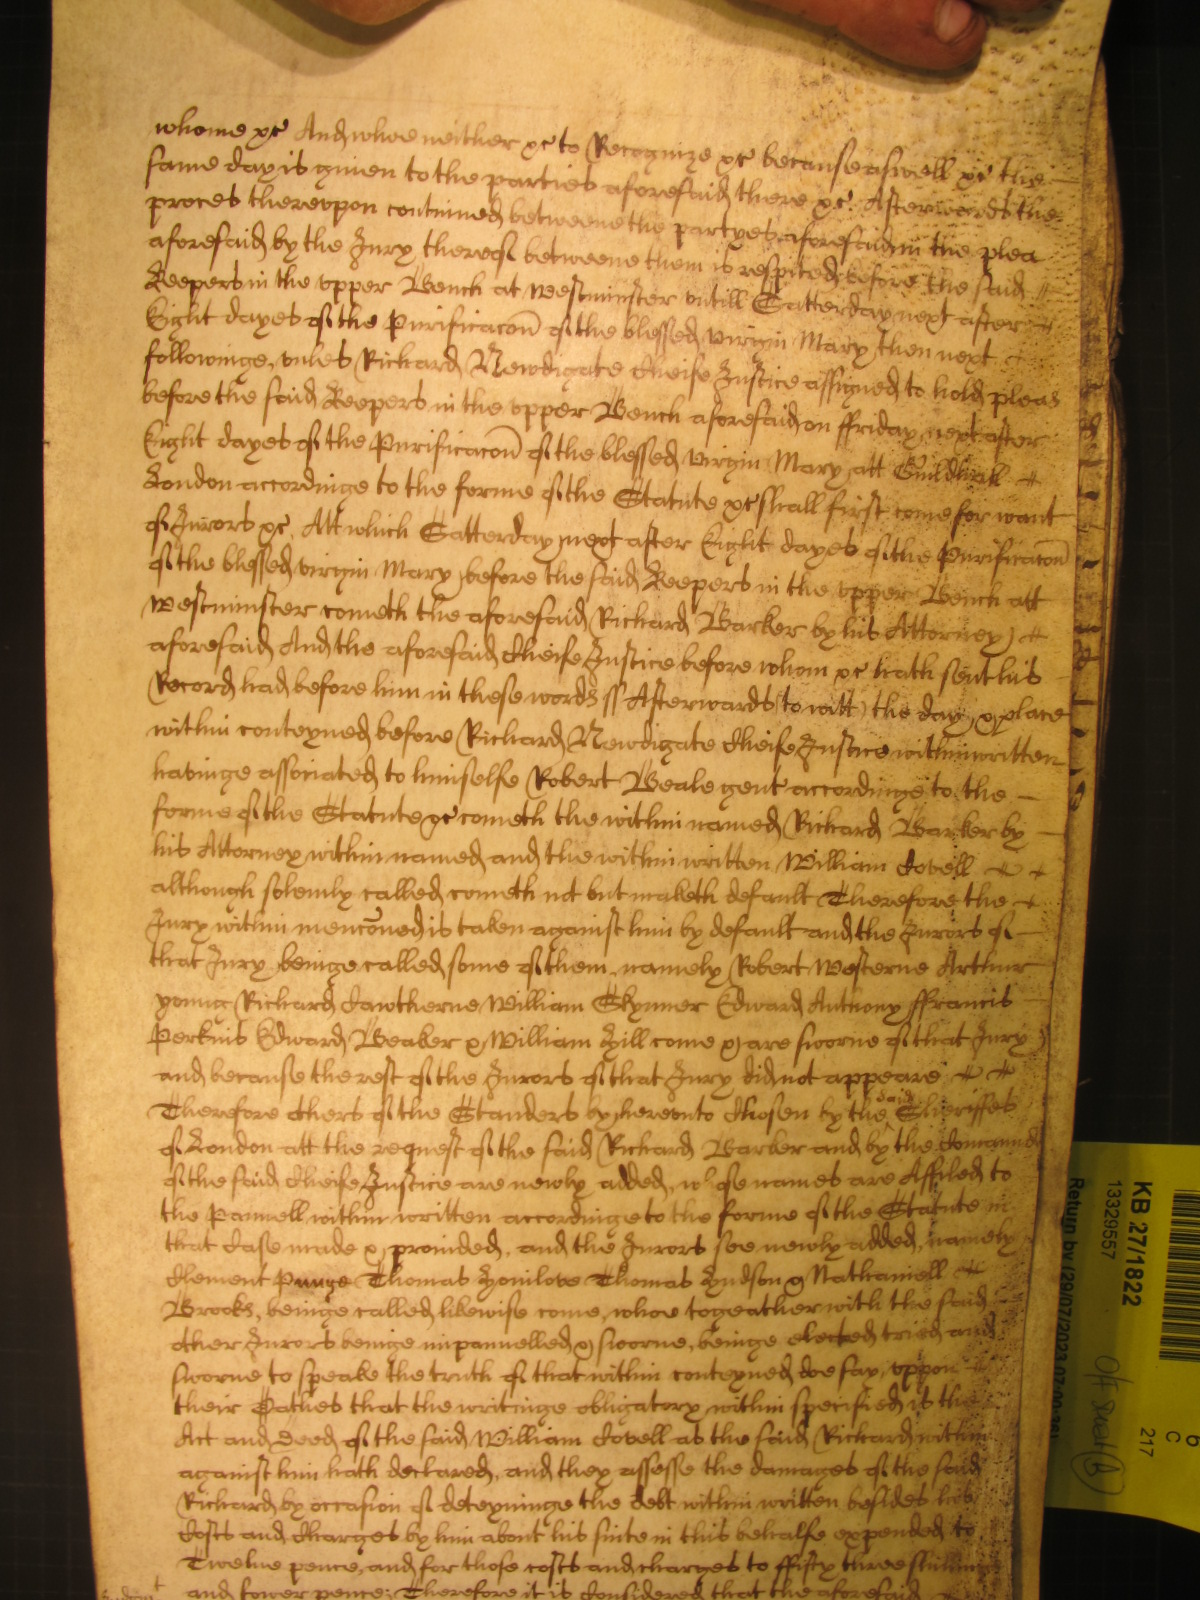 whome &c And whoe neither &c to Recognize &c because aswell &c the
same day is given to the parties aforesaid there &c. Afterwards the
proces thereupon continued betweene the partyes aforesaid in the plea
aforesaid by the Jury thereof betweene them is respited before the said
Keepers in the upper Bench at Westminster untill Satterday next after
Eight dayes of the Purificacon of the blessed virgin Mary then next
followinge, unles Richard Newdigate Cheife Justice assigned to hold pleas
before the said Keepers in the upper Bench aforesaid on ffriday next after
Eight dayes of the Purificacon of the blessed virgin Mary att Guildhall
London accordinge to the forme of the Statute &c shall first come for want
of Jurors &c. Att which Satterday next after Eight dayes of the Purificacon
of the blessed virgin Mary before the said Keepers in the upper Bench att
Westminster cometh the aforesaid Richard Barker by his Attorney
aforesaid And the aforesaid Cheife Justice before whom &c hath sent his
Record had before him in these words ss Afterwards to witt the day & place
within conteyned before Richard Newdigate Cheife Justice within written
havinge associated to himselfe Robert Beale gent accordinge to the
forme of the Statute &c cometh the within named Richard Barker by
his Attorney within named and the within written William Covell
although solemly called cometh not but maketh default Therefore the
Jury within menconed is taken against him by default and the Jurors of
that Jury beinge called some of them, namely Robert Westerne Arthur
yonng Richard Cawtherne William Skynner Edward Anthony ffrancis
Perkins Edward Beaker & William Hill come & are sworne of that Jury
and because the rest of the Jurors of that Jury did not appeare
Therefore others of the Standers by hereonto chosen by the said Sheriffes
of London att the request of the said Richard Barker and by the Comaund
of the said Cheife Justice are newly added, whose names are Affiled to
the Pannell within written accordinge to the forme of the Statute in
that Case made & provided, and the Jurors soe newly added, namely
Clement Thomas Honilove Thomas Hudson & Nathaniell
Brooks, beinge called likewise come, whoe togeather with the said
other Jurors beinge impannelled & sworne, beinge elected tried and
sworne to speake the truth of that within conteyned doe say uppon
their Oathes that the writinge obligatory within specified is the
Act and Deed of the said William Covell as the said Richard within
against him hath declared, and they assesse the damages of the said
Richard by occasion of deteyninge the debt within written besides his
Costs and Charges by him about his suite in this behalfe expended to
Twelve pence, and for those costs and charges to ffifty three shillings
and fower pence; Therefore it is Considered that the aforesaid
KB 27/1822
13329557
Return by (29/07/2023 07:00:36)
217
C
6